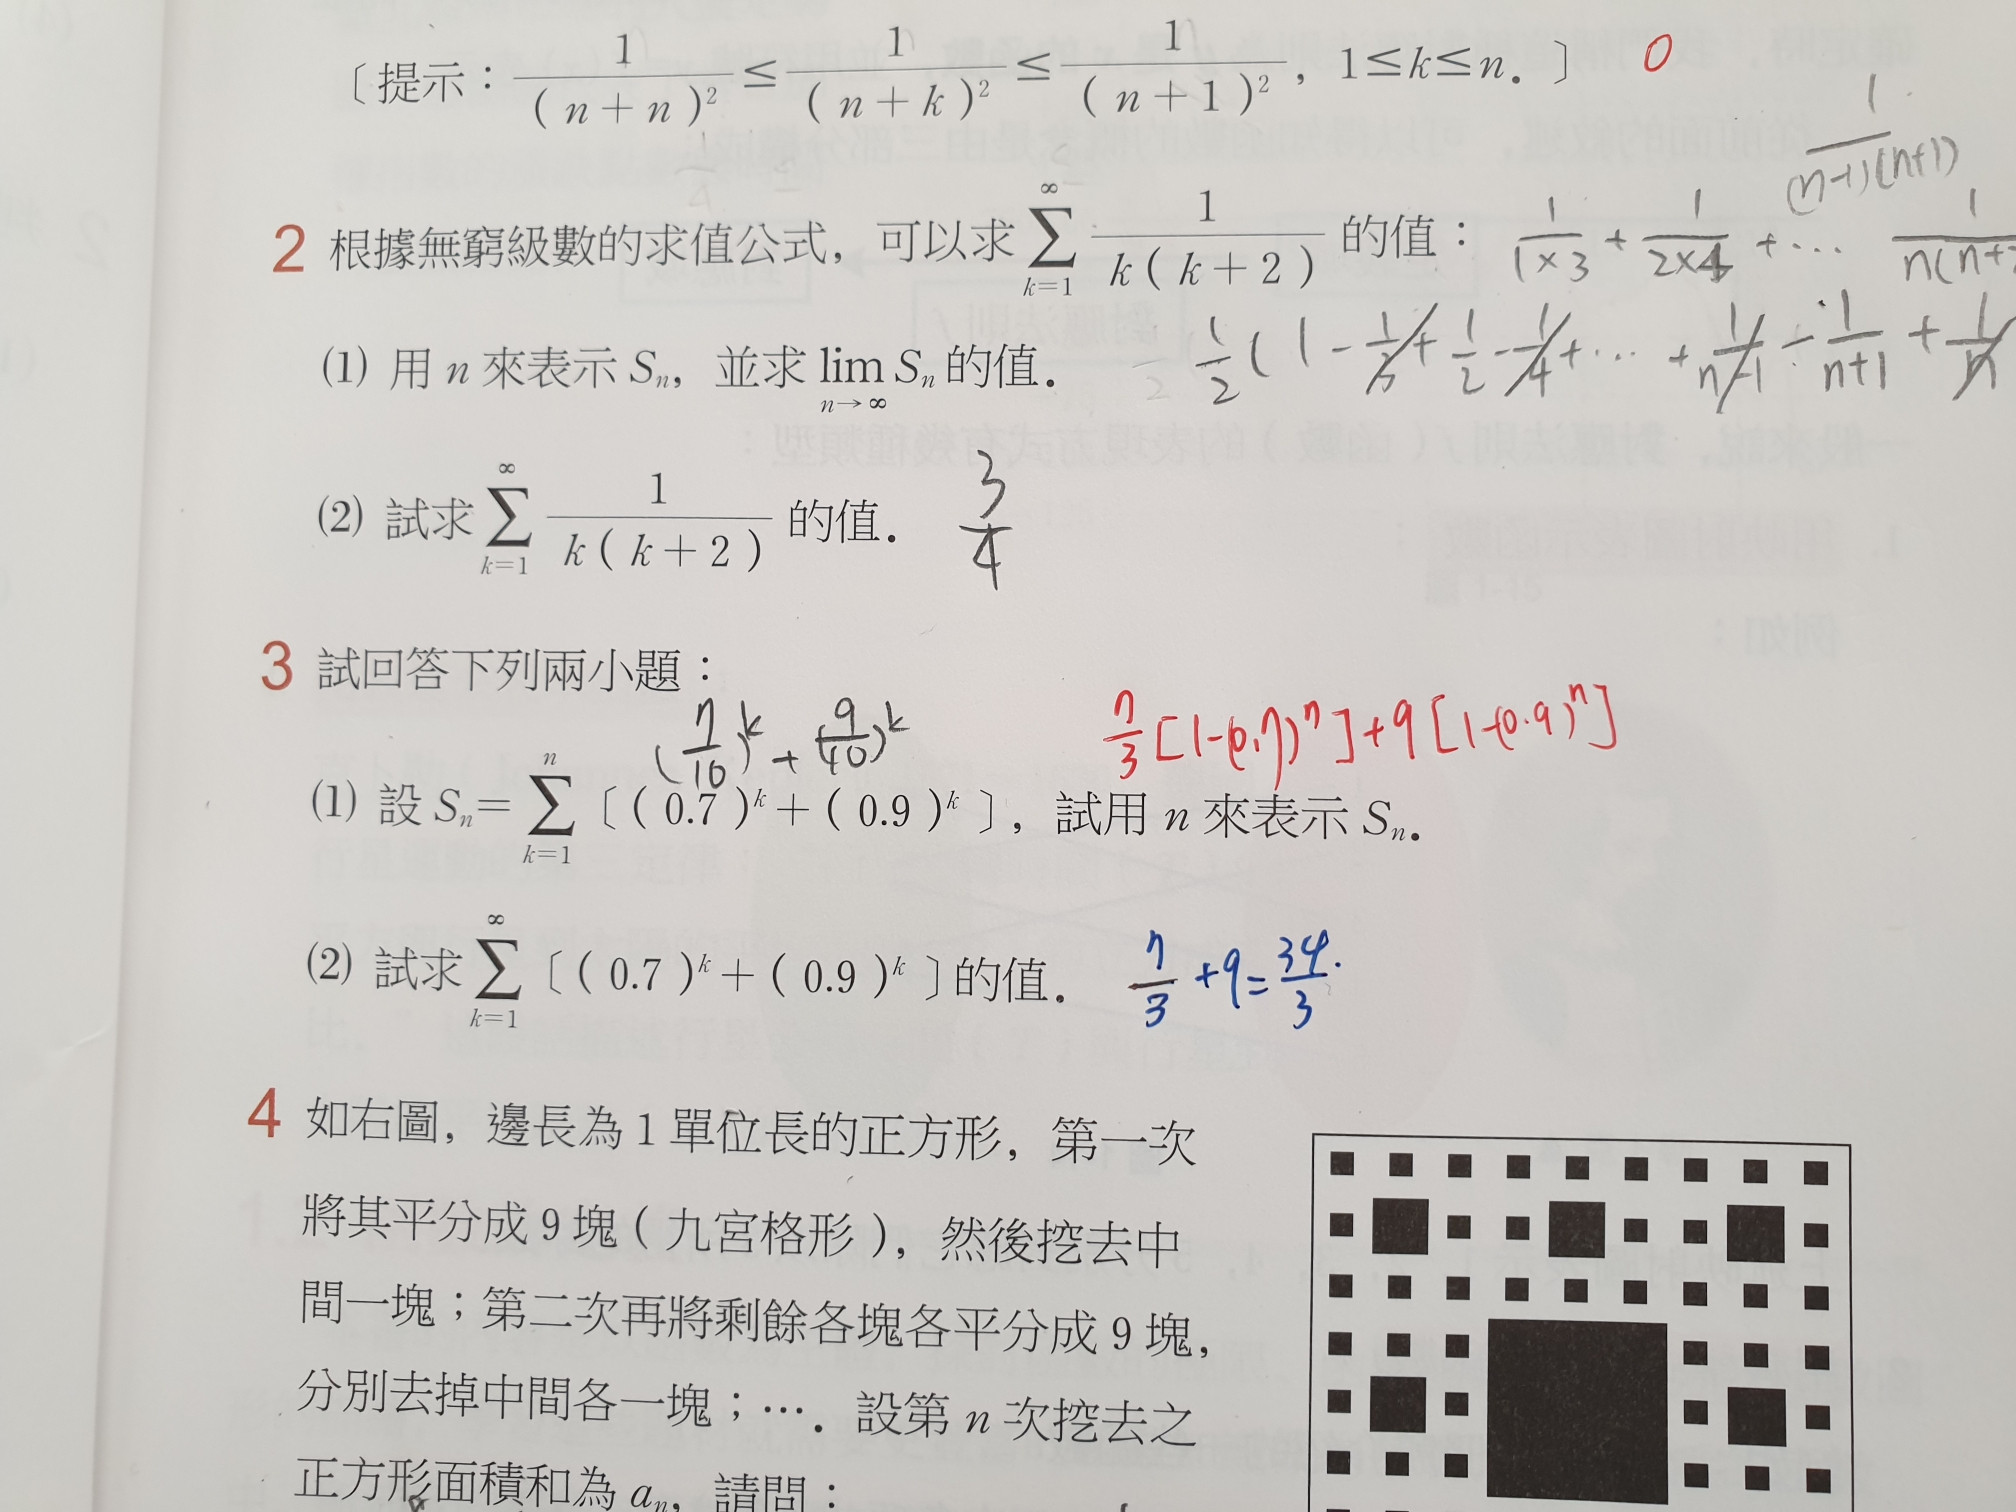 〔提示：1/(n+n)² ≤ 1/(n+k)² ≤ 1/(n+1)²，1≤k≤n．〕 0
1/(n-1)(n+1)
2 根據無窮級數的求值公式，可以求 ∞∑k=1 1/k(k+2) 的值： 1/1×3 + 1/2×4 + … 1/n(n+2
(1) 用 n 來表示 Sn，並求 lim n→∞ Sn 的值． 1/2 (1 - 1/3 + 1/2 - 1/4 + … + 1/n-1 - 1/n+1 + 1/n
(2) 試求 ∞∑k=1 1/k(k+2) 的值． 3/4
3 試回答下列兩小題：
(7/10)^k + (9/10)^k 7/3[1-(0.7)^n]+9[1-(0.9)^n]
(1) 設 Sn= n∑k=1〔(0.7)^k+(0.9)^k〕，試用 n 來表示 Sn．
(2) 試求 ∞∑k=1〔(0.7)^k+(0.9)^k〕的值． 7/3 +9= 34/3.
4 如右圖，邊長為 1 單位長的正方形，第一次
將其平分成 9 塊(九宮格形)，然後挖去中
間一塊；第二次再將剩餘各塊各平分成 9 塊，
分別去掉中間各一塊；…．設第 n 次挖去之
正方形面積和為 an，請問：